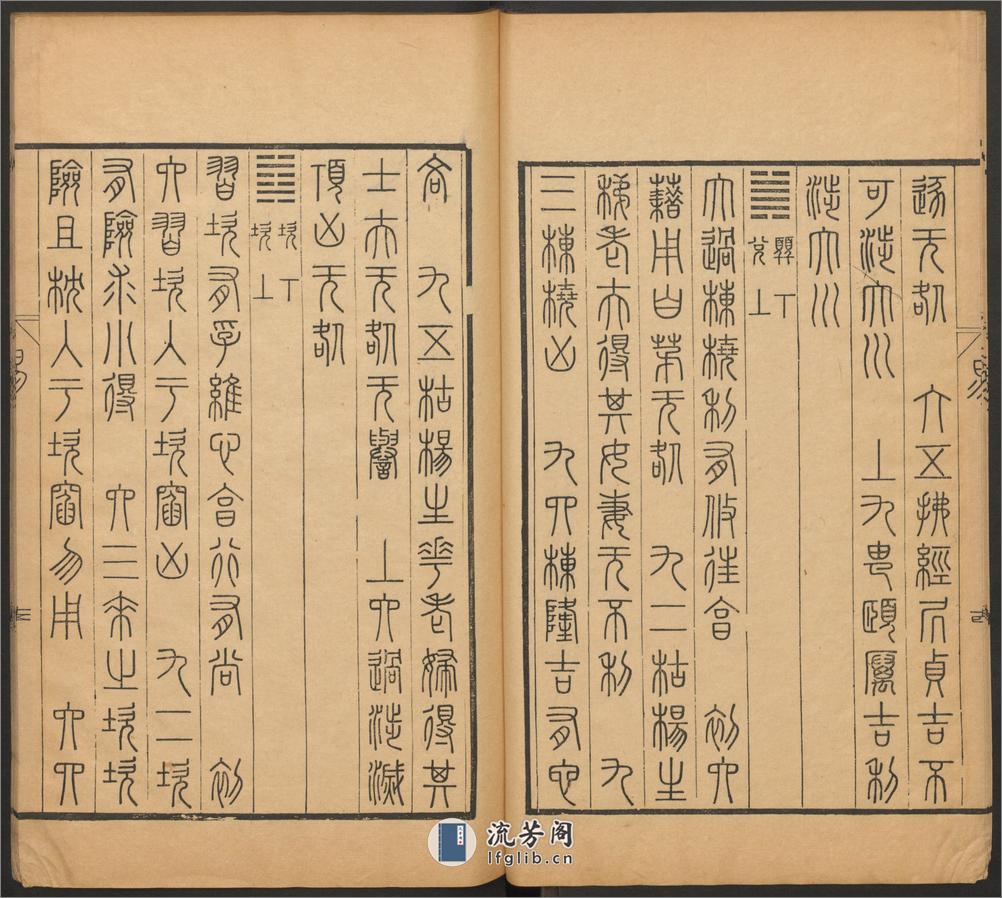 逐无咎　六五拂經居貞吉不
可涉大川　上九由頤厲吉利
涉大川
䷛ 巽下兌上
大過棟橈利有攸往亨　初六
藉用白茅无咎　九二枯楊生
稊老夫得其女妻无不利　九
三棟橈凶　九四棟隆吉有它
吝　九五枯楊生華老婦得其
士夫无咎无譽　上六過涉滅
頂凶无咎
䷜ 坎下坎上
習坎有孚維心亨行有尚　初
六習坎入于坎窞凶　九二坎
有險求小得　六三來之坎坎
險且枕入于坎窞勿用　六四
流芳阁
lfglib.cn